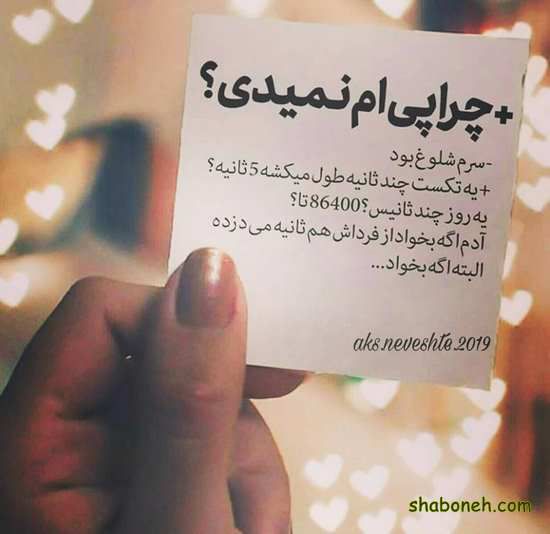 +چرا پی ام نمیدی؟
-سرم شلوغ بود
+یه تکست چند ثانیه طول میکشه 5 ثانیه؟
یه روز چند ثانیس؟ 86400 تا؟
آدم اگه بخواد از فرداش هم ثانیه می دزده
البته اگه بخواد...
aks.neveshte.2019
shaboneh.com